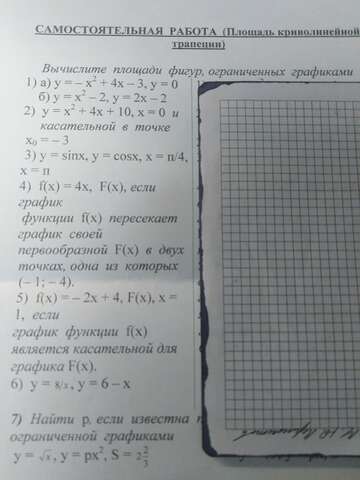 САМОСТОЯТЕЛЬНАЯ РАБОТА (Площадь криволинейной
трапеции)
Вычислите площади фигур, ограниченных графиками
1) а) y = – x² + 4x – 3, y = 0
б) y = x² – 2, y = 2x – 2
2) y = x² + 4x + 10, x = 0 и
касательной в точке
x₀ = – 3
3) y = sinx, y = cosx, x = π/4,
x = π
4) f(x) = 4x, F(x), если
график
функции f(x) пересекает
график своей
первообразной F(x) в двух
точках, одна из которых
(– 1; – 4).
5) f(x) = – 2x + 4, F(x), x =
1, если
график функции f(x)
является касательной для
графика F(x).
6) y = 8/x, y = 6 – x
7) Найти p, если известна
ограниченной графиками
y = √x, y = px², S = 2 2/3